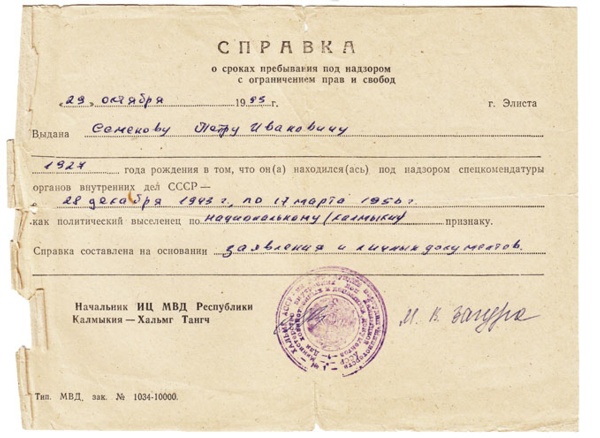 СПРАВКА
о сроках пребывания под надзором
с ограничением прав и свобод
„29„ октября 1993 г. г. Элиста
Выдана Семенову Петру Ивановичу
1927 года рождения в том, что он(а) находился(ась) под надзором спецкомендатуры
органов внутренних дел СССР—
с 28 декабря 1943 г, по 17 марта 1956 г.
как политический выселенец по национальному (калмыки) признаку.
Справка составлена на основании заявления и личных документов.
Начальник ИЦ МВД Республики
Калмыкия — Хальмг Тангч
М. В.
Тип. МВД, зак. № 1034-10000.